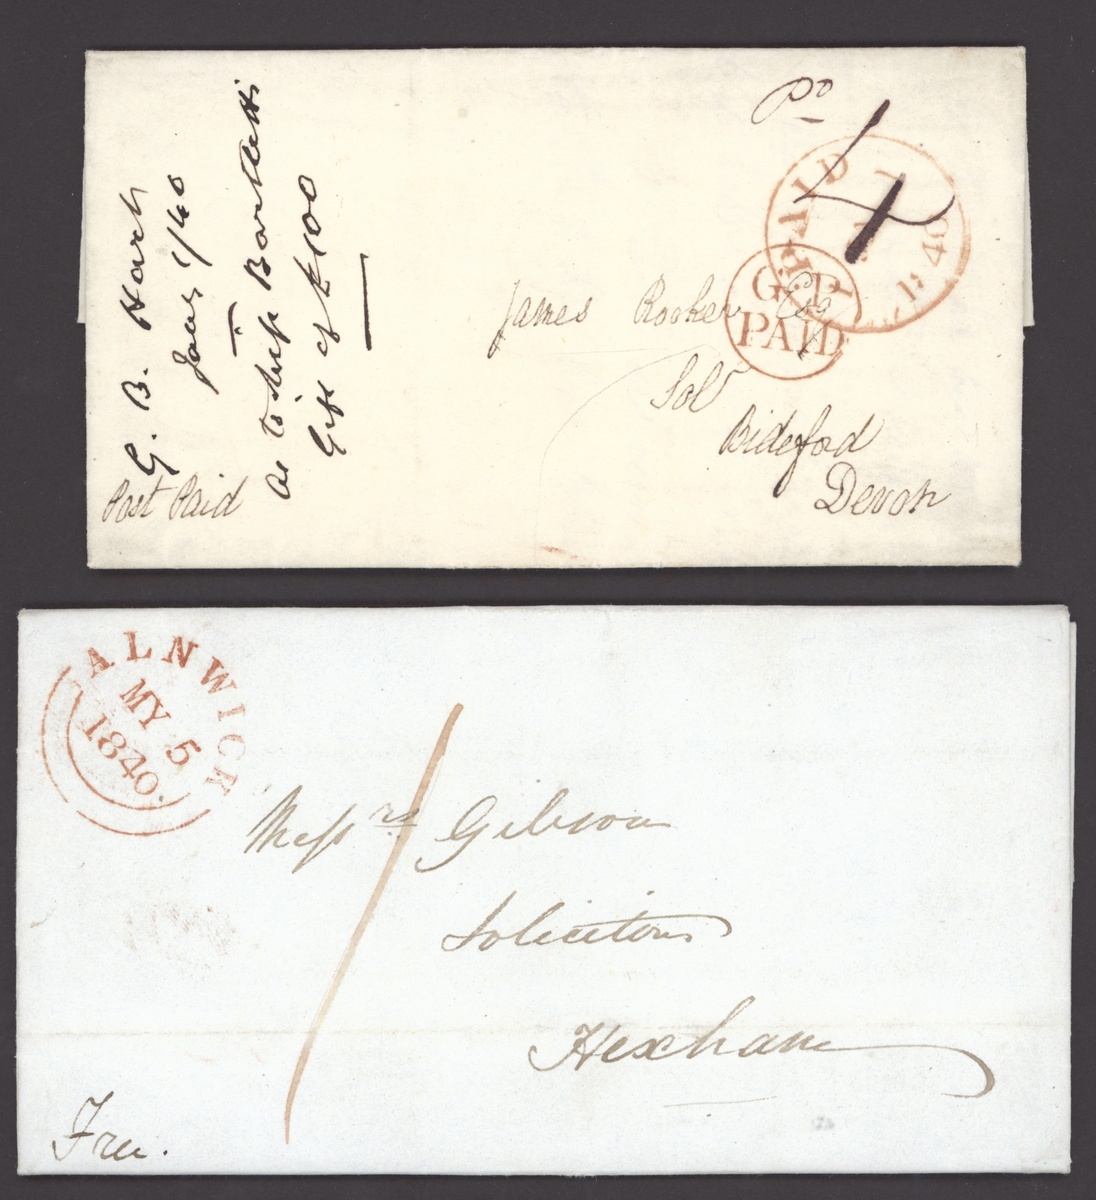 G. B. Harh
Jany 1/40
As to Miss Bartletts
Gift of £100
Post Paid
Po
4
PAID
1840
G.P.
PAID
James Rooker Esq
Solr
Bideford
Devon
ALNWICK
MY 5
1840.
1
Messrs Gibson
Solicitors
Hexham
Free.